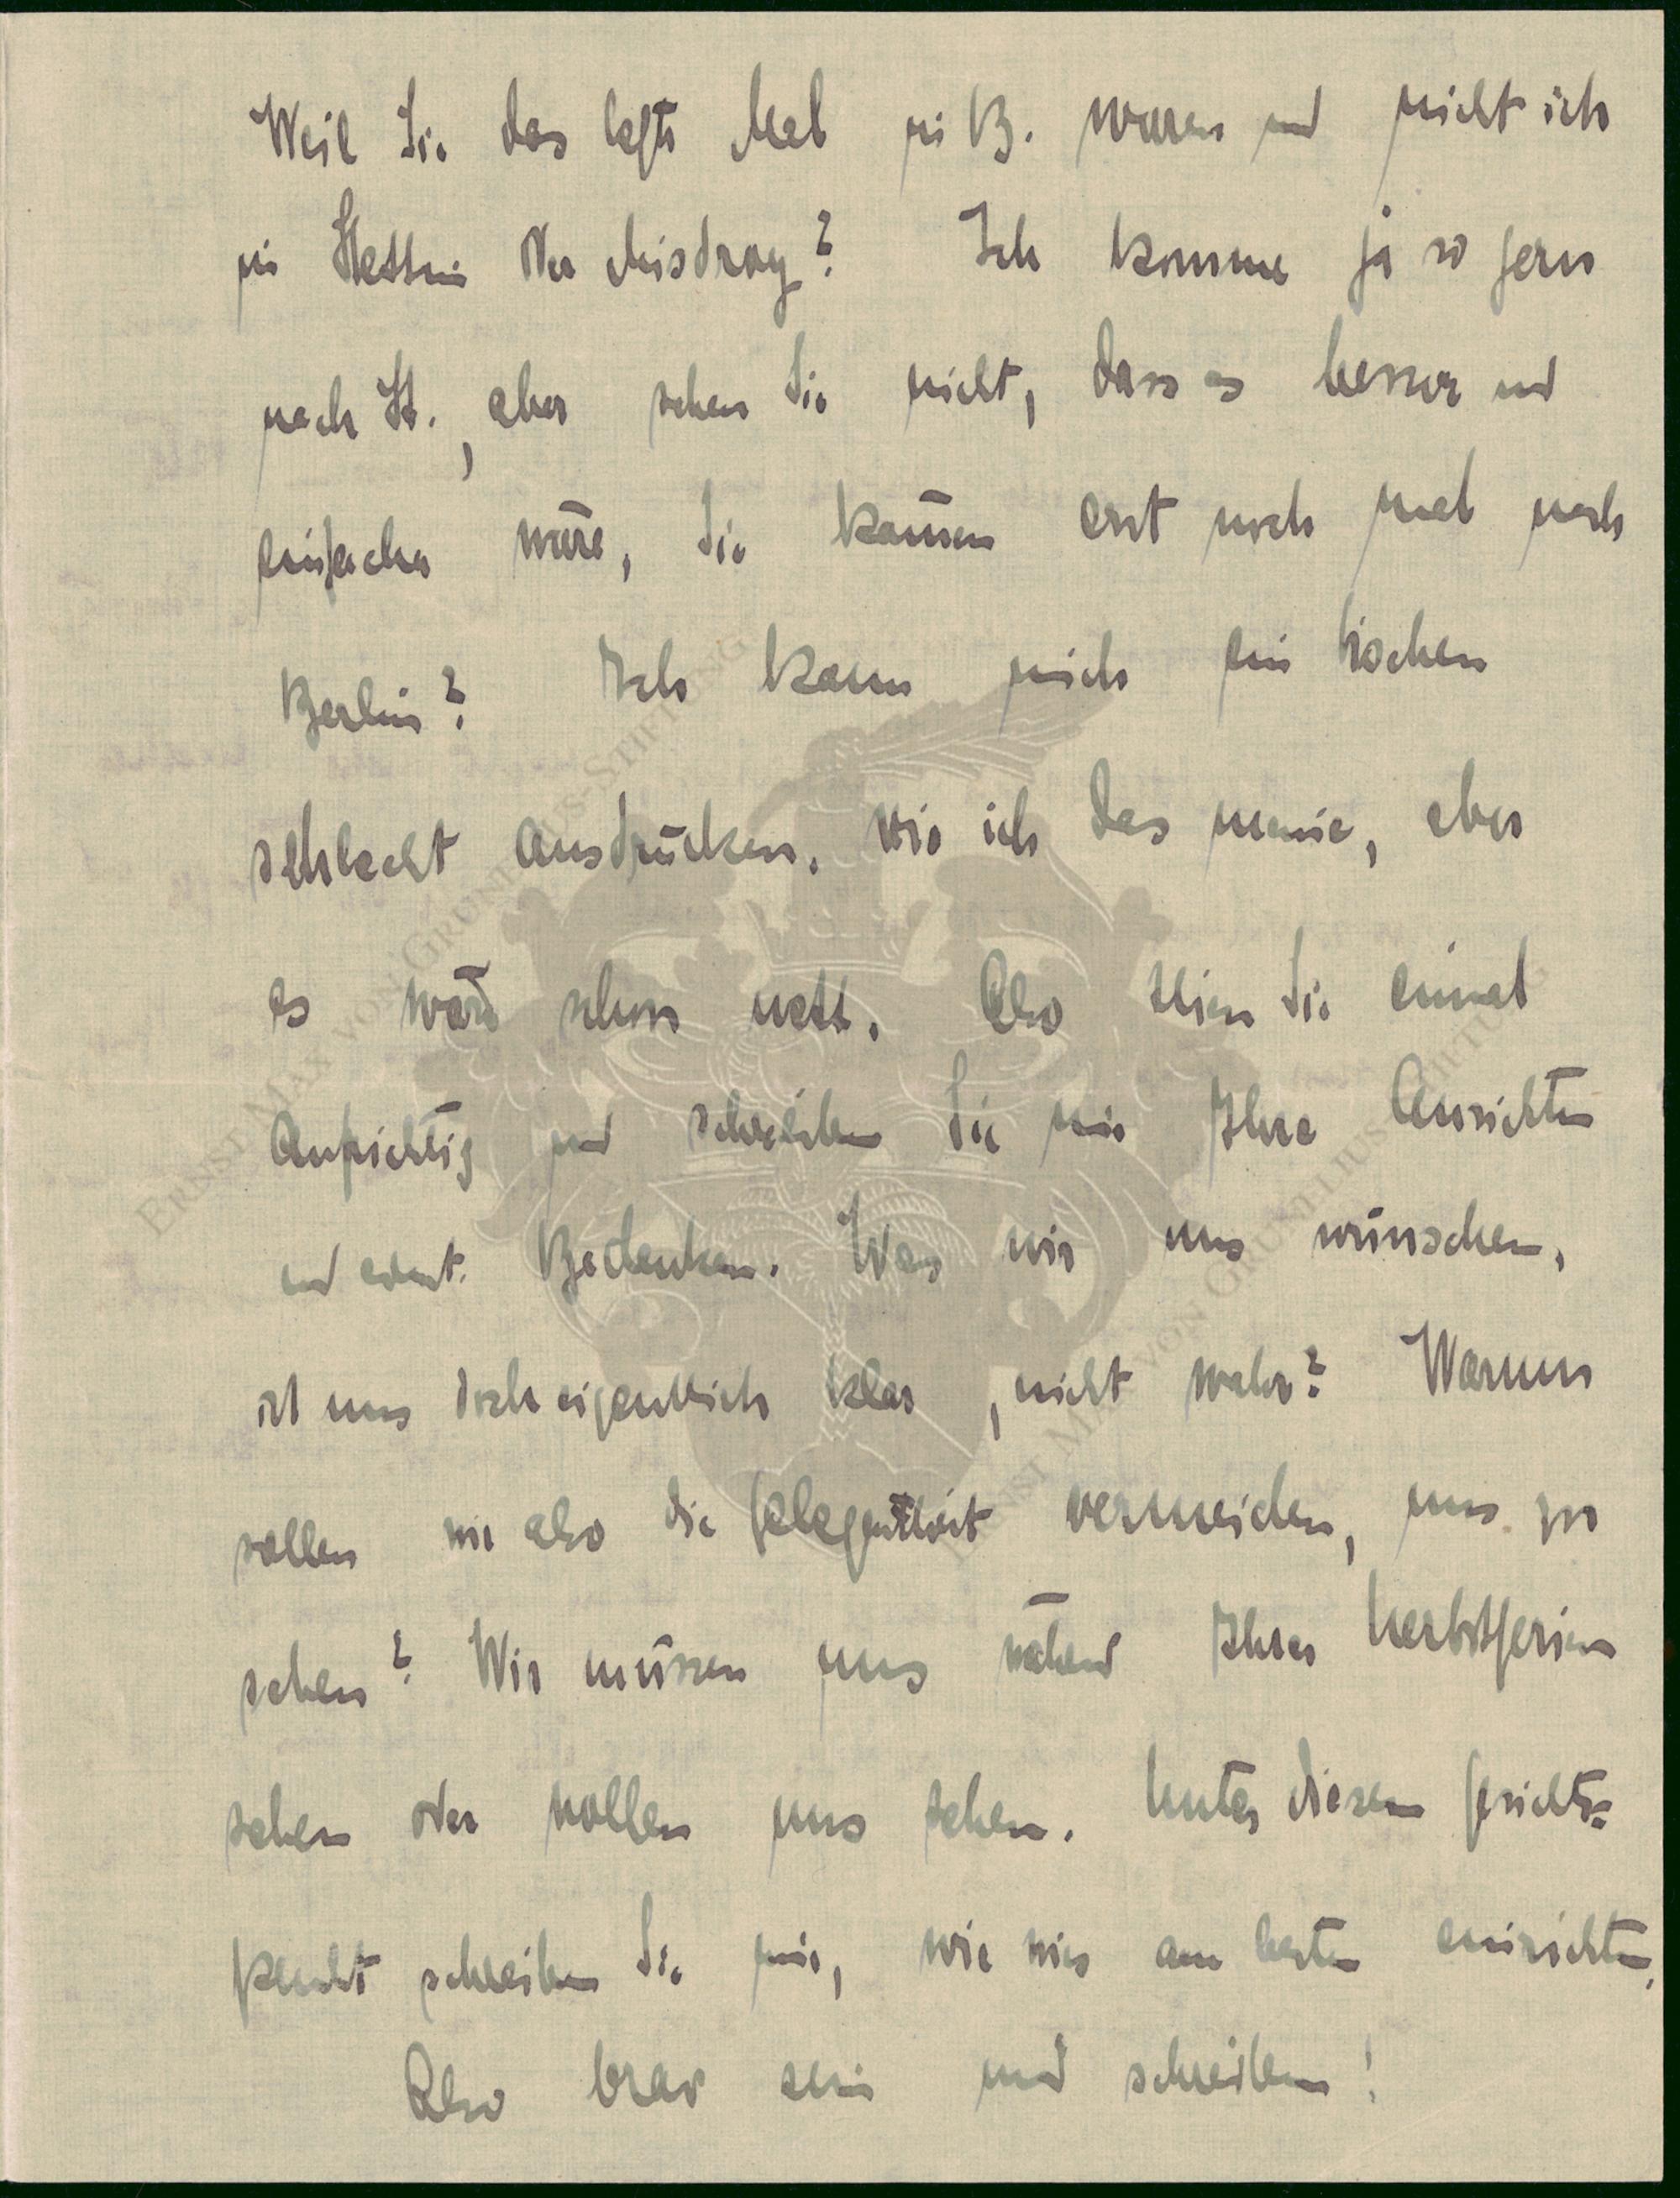 Weil Sie das letzte Mal in B. waren und nicht ich
in Stettin oder Misdroy? Ich komme ja so gern
nach St., aber sehen Sie nicht, dass es besser und
einfacher wäre, Sie kämen erst noch mal nach
Berlin? Ich kann mich ein bischen
schlecht ausdrücken, wie ich das meine, aber
es wäre schon nett. Also seien Sie einmal
aufrichtig und schreiben Sie mir Ihre Ansichten
und event. Bedenken. Was wir uns wünschen,
ist uns doch eigentlich klar, nicht wahr? Warum
sollen wir also die Gelegenheit vermeiden, uns zu
sehen? Wir müssen uns während Ihrer Herbstferien
sehen oder wollen uns sehen. Unter diesem Gesichts=
punkt schreiben Sie mir, wie wirs am besten einrichten.
Also brav sein und schreiben!
ERNST MAX VON GRUNELIUS-STIFTUNG
ERNST MAX VON GRUNELIUS-STIFTUNG